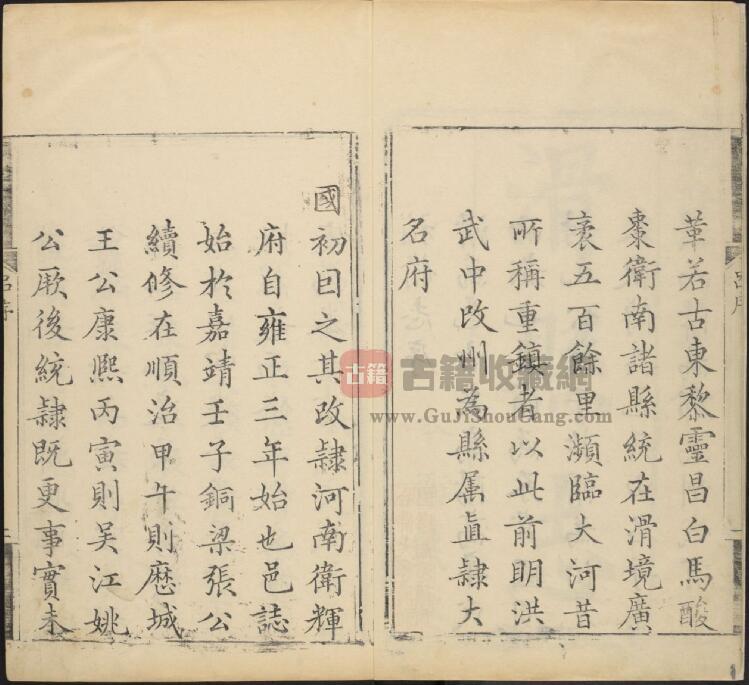 葦若古東黎靈昌白馬酸
棗衛南諸縣統在滑境廣
袤五百餘里瀕臨大河昔
所稱重鎮者以此前明洪
武中改州為縣属直隸大
名府
國初因之其改隸河南衛輝
府自雍正三年始也邑誌
始於嘉靖壬子銅梁張公
續修在順治甲午則歴城
王公康熙丙寅則吴江姚
公厥後統隷既更事實未
吕序
古籍
古籍收藏網
www.GuJiShouCang.com